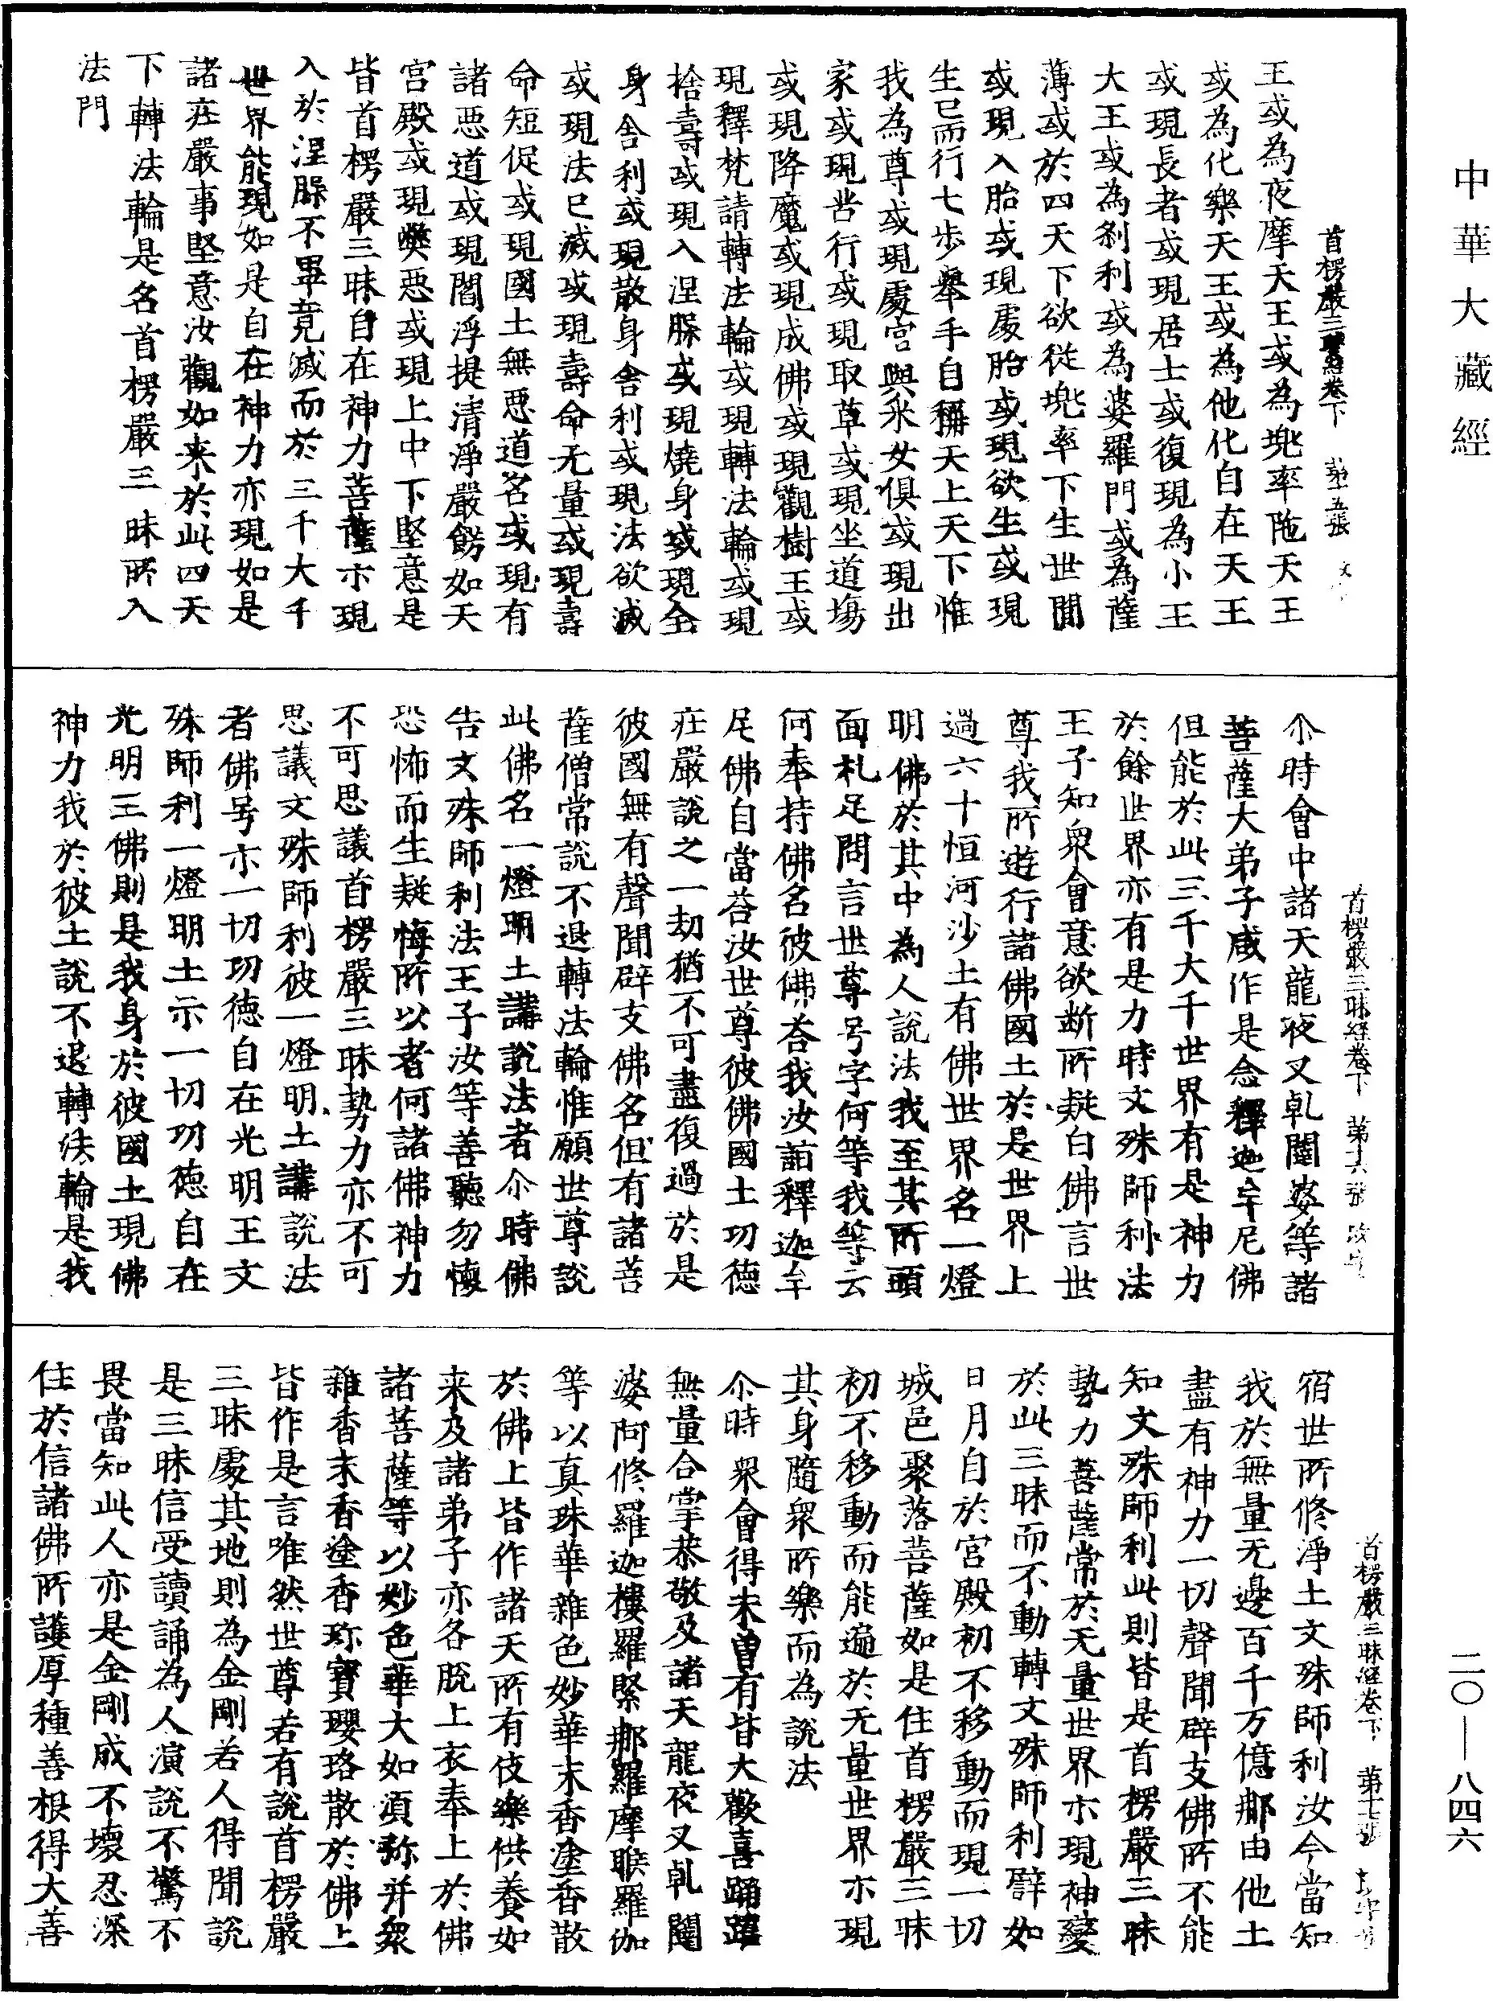 中華大藏經
首楞嚴三昧經卷下　第五張
王或為夜摩天王或為兜率陁天王
或為化樂天王或為他化自在天王
或現長者或現居士或復現為小王
大王或為剎利或為婆羅門或為薩
薄或於四天下欲從兜率下生世間
或現入胎或現處胎或現欲生或現
生已而行七步舉手自稱天上天下惟
我為尊或現處宮與采女俱或現出
家或現苦行或現取草或現坐道場
或現降魔或現成佛或現觀樹王或
現釋梵請轉法輪或現轉法輪或現
捨壽或現入涅槃或現燒身或現全
身舍利或現散身舍利或現法欲滅
或現法已滅或現壽命无量或現壽
命短促或現國土無惡道名或現有
諸惡道或現閻浮提清淨嚴飾如天
宮殿或現弊惡或現上中下堅意是
皆首楞嚴三昧自在神力菩薩示現
入於涅槃不畢竟滅而於三千大千
世界能現如是自在神力亦現如是
諸莊嚴事堅意汝觀如来於此四天
下轉法輪是名首楞嚴三昧所入
法門
首楞嚴三昧經卷下　第六張
尒時會中諸天龍夜叉乹闥婆等諸
菩薩大弟子咸作是念釋迦牟尼佛
但能於此三千大千世界有是神力
於餘世界亦有是力時文殊師利法
王子知衆會意欲断所疑白佛言世
尊我所遊行諸佛國土於是世界上
過六十恒河沙土有佛世界名一燈
明佛於其中為人說法我至其所頭
面札足問言世尊号字何等我等云
何奉持佛名彼佛荅我汝詣釋迦牟
尼佛自當荅汝世尊彼佛國土功德
莊嚴說之一劫猶不可盡復過於是
彼國無有聲聞辟支佛名但有諸菩
薩僧常說不退轉法輪惟願世尊說
此佛名一燈明土講說法者尒時佛
告文殊師利法王子汝等善聽勿懷
恐怖而生疑悔所以者何諸佛神力
不可思議首楞嚴三昧勢力亦不可
思議文殊師利彼一燈明土講說法
者佛号示一切功德自在光明王文
殊師利一燈明土示一切功德自在
光明王佛則是我身於彼國土現佛
神力我於彼土說不退轉法輪是我
首楞嚴三昧經卷下　第七張
宿世所修淨土文殊師利汝今當知
我於無量无邊百千万億那由他土
盡有神力一切聲聞辟支佛所不能
知文殊師利此則皆是首楞嚴三昧
勢力菩薩常於无量世界示現神變
於此三昧而不動轉文殊師利譬如
日月自於宮殿初不移動而現一切
城邑聚落菩薩如是住首楞嚴三昧
初不移動而能遍於无量世界示現
其身隨衆所樂而為說法
尒時衆會得未曽有皆大歡喜踊躍
無量合掌恭敬及諸天龍夜叉乹闥
婆阿修羅迦樓羅緊那羅摩睺羅伽
等以真珠華雜色妙華末香塗香散
於佛上皆作諸天所有伎樂供養如
来及諸弟子亦各脫上衣奉上於佛
諸菩薩等以妙色華大如湏弥并衆
雜香末香塗香珎寶瓔珞散於佛上
皆作是言唯然世尊若有說首楞嚴
三昧處其地則為金剛若人得聞說
是三昧信受讀誦為人演說不驚不
畏當知此人亦是金剛成不壞忍深
住於信諸佛所護厚種善根得大善
二〇—八四六